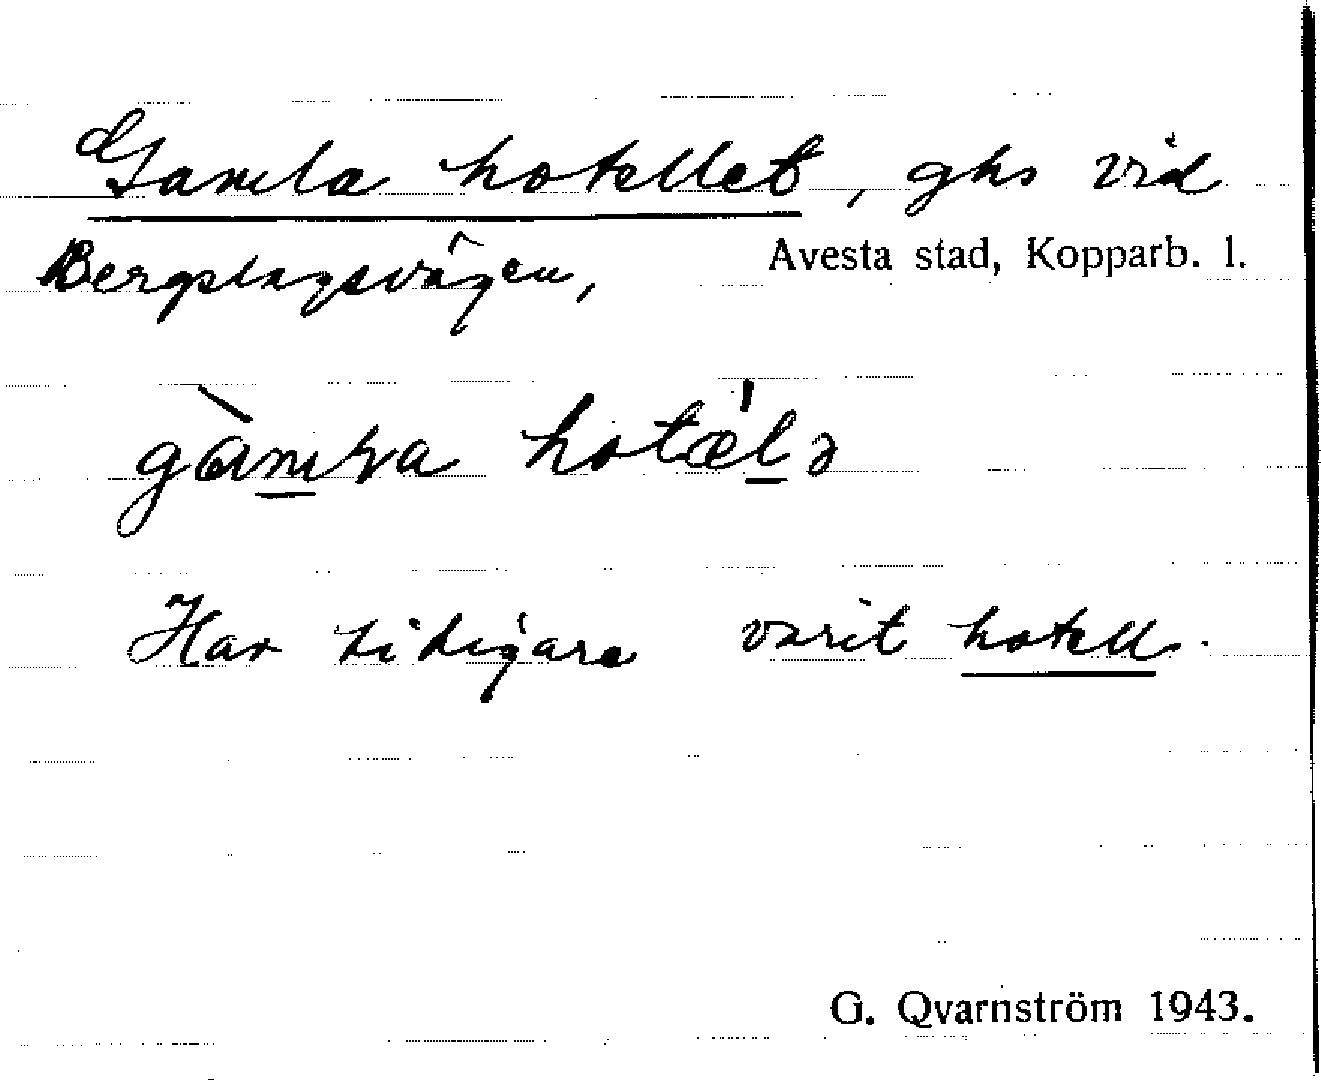 Gamla hotellet, ghs vid
Bergslagsvägen, Avesta stad, Kopparb. l.
gàmɽa hotæ̍lə
Har tidigare varit hotell.
G. Qvarnström 1943.